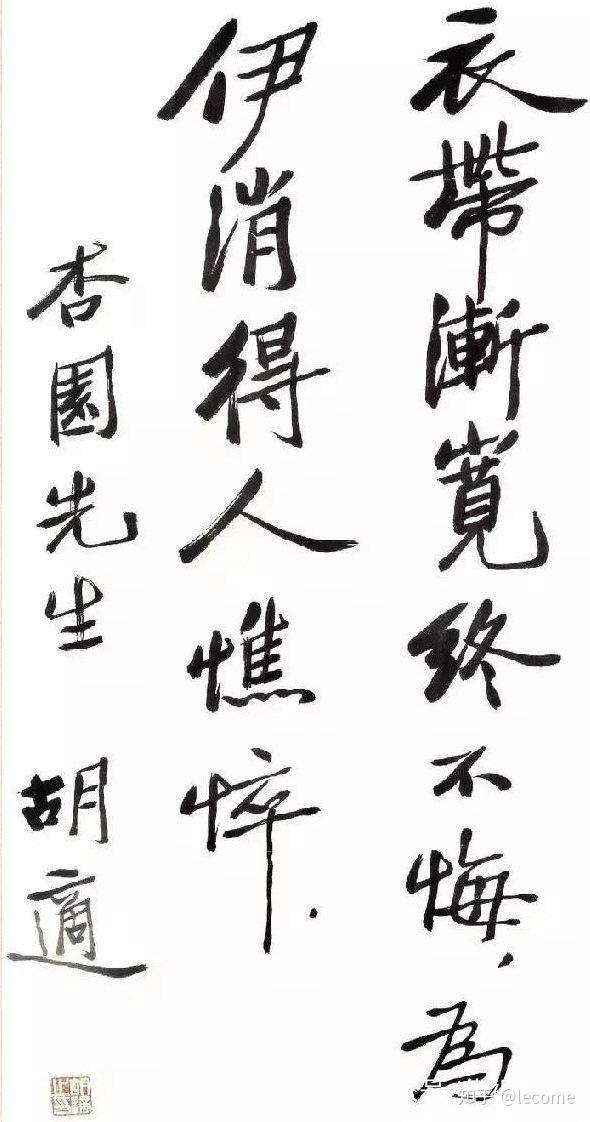 衣帶漸寬終不悔，為
伊消得人憔悴．
杏園先生
胡適
知乎 @lecome